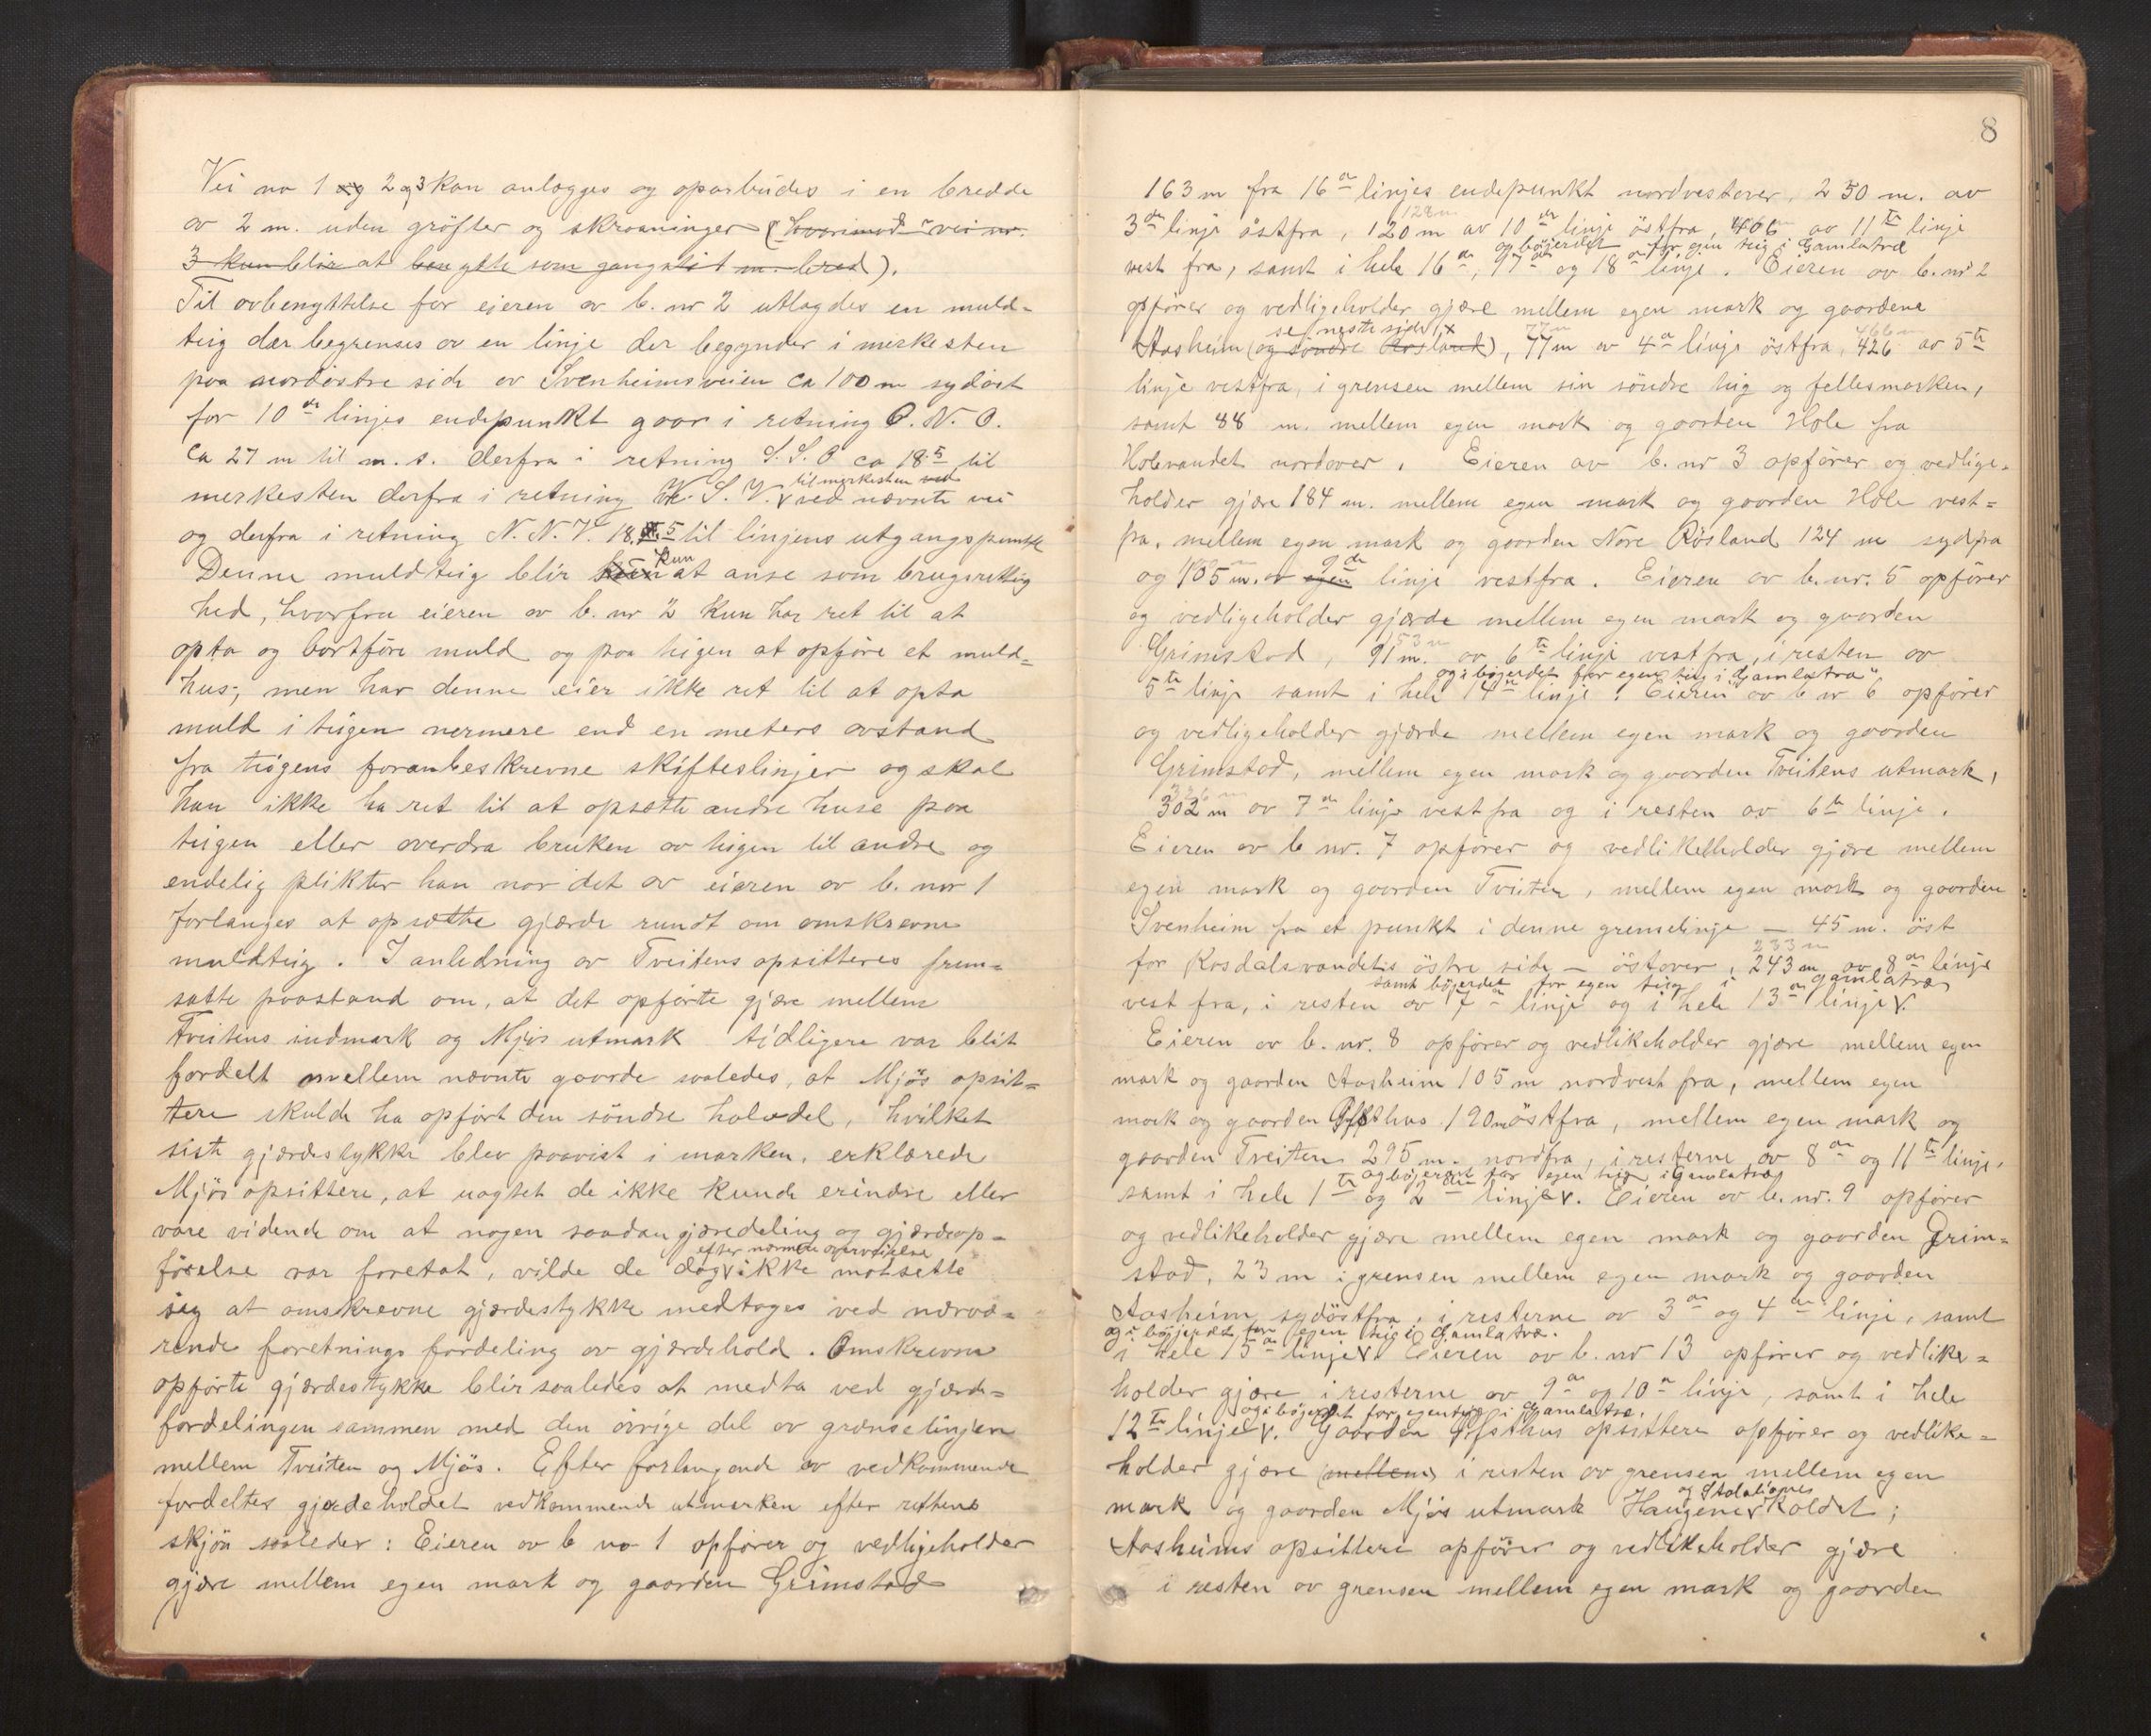 Vei no 1 og 2 og 3 kan anlægges og oparbeides i en bredde
av 2 m. uden gröfter og skraaninger (hvorimod vei nr.
3 kun blir at benytte som gangsti 1 m. bred).
Til avbenyttelse for eieren av b. nr 2 utlagdes en muld=
teig der begrenses av en linje der begynder i merkesten
paa nordöstre side av Svenheimsveien ca 100 m sydöst
for 10de linjes endepunkt gaar i retning O. N. O.
ca 27 m til m. s. derfra i retning S. S. O ca 18.5 til
merkesten derfra i retning V. S. V. til merkesten ved ved nævnte vei
og derfra i retning N. N. V. 18.5 til linjens utgangspunkt
Denne muldteig blir kun at anse som bruksrettig
hed, hvorfra eieren av b. nr 2 kun har ret til at
opta og bortföre muld og paa teigen at opföre et muld=
hus; men har denne eier ikke ret til at opta
muld i teigen nermere end en meters avstand
fra teigens foranbeskrevne skifteslinjer og skal
han ikke ha ret til at opsætte andre huse paa
teigen eller overdra bruken av teigen til andre og
endelig plikter han nar det av eieren av b. nr 1
forlanges at opsætte gjærde rundt om omskrevne
muldteig. I anledning av Tveitens opsitteres frem=
satte paastand om, at det opförte gjære mellem
Tveitens indmark og Mjös utmark tidligere var blit
fordelt mellem nævnte gaarde saaledes, at Mjös opsit=
tere skulde ha opfört den söndre halvdel, hvilket
siste gjærdestykke blev paavist i marken, erklærede
Mjös opsittere, at uagtet de ikke kunde erindre eller
vare vidende om at nogen saadan gjæredeling og gjærdeop=
förelse var foretat, vilde de dog efter nærmere overveielse ikke motsette
sig at omskrevne gjærdestykke medtages ved nærvæ=
rende forretnings fordeling av gjærdehold. Omskrevne
opförte gjærdestykke blir saaledes at medta ved gjærde=
fordelingen sammen med den övrige del av grænselinjen
mellem Tveiten og Mjös. Efter forlangende av vedkommende
fordeltes gjærdeholdet vedkommende utmarken efter rettens
skjön saaledes: Eieren av b no 1 opförer og vedligeholder
gjære mellem egen mark og gaarden Grimstad
8
163 m fra 16de linjes endepunkt nordvestover, 230 m. av
3de linje östfra, 120 m av 10de linje östfra, 406 av 11te linje
vest fra, samt i hele 16de, 17de og 18de linje og böjerdet for egen teig i Gamlatræ. Eieren av b. nr 2
opförer og vedligeholder gjære mellem egen mark og gaardene
Aasheim (og söndre Rösland) se neste side x, 77 m av 4de linje östfra, 426 av 5te
linje vestfra, i grensen mellem sin söndre teig og fellesmarken,
samt 88 m. mellem egen mark og gaarden Hole fra
Holevandet nordover. Eieren av b. nr 3 opförer og vedlige=
holder gjære 184 m. mellem egen mark og gaarden Hole vest=
fra, mellem egen mark og gaarden Nore Rösland 124 m sydfra
og 105 m. av egen 9de linje vestfra. Eieren av b. nr. 5 opförer
og vedligeholder gjærde mellem egen mark og gaarden
Grimstad, 91 m. av 6te linje vestfra, i resten av
5te linje samt i hele 14de linje og i böjerdet for egen teig i Gamlatra". Eieren av b nr 6 opförer
og vedligeholder gjærde mellem egen mark og gaarden
Grimstad, mellem egen mark og gaarden Tveitens utmark,
302 m av 7de linje vestfra og i resten av 6te linje.
Eieren av b nr. 7 opförer og vedlikeholder gjære mellem
egen mark og gaarden Tveiten, mellem egen mark og gaarden
Svenheim fra et punkt i denne grenselinje — 45 m. öst
for Rosdalsvandets östre side — östover, 243 m av 8de linje
vest fra, i resten av 7de linje og i hele 13de linje samt böjerdet for egen teig i gamlatræ.
Eieren av b. nr. 8 opförer og vedlikeholder gjære mellem egen
mark og gaarden Aasheim 105 m nordvest fra, mellem egen
mark og gaarden Öfsthus 190 m östfra, mellem egen mark og
gaarden Tveiten 295 m. nordfra, i resterne av 8de og 11te linje,
samt i hele 1te og 2den linje og böjerdet for egen teig i Gamlatræ. Eieren av b. nr. 9 opförer
og vedlikeholder gjære mellem egen mark og gaarden Grim=
stad, 23 m i grensen mellem egen mark og gaarden
Aasheim sydöstfra, i resterne av 3de og 4de linje, samt
i hele 15de linje og i böjerdet for egen teig i Gamlatræ. Eieren av b. nr 13 opförer og vedlike=
holder gjære i resterne av 9de og 10de linje, samt i hele
12te linje og i böjerdet for egen teig i Gamlatræ. Gaarden Öfsthus opsittere opförer og vedlike=
holder gjære (mellem) i resten av grensen mellem egen
mark og gaarden Mjös utmark Haugene og Stølatiønes koldet;
Aasheims opsittere opförer og vedlikeholder gjære
i resten av grensen mellem egen mark og gaarden